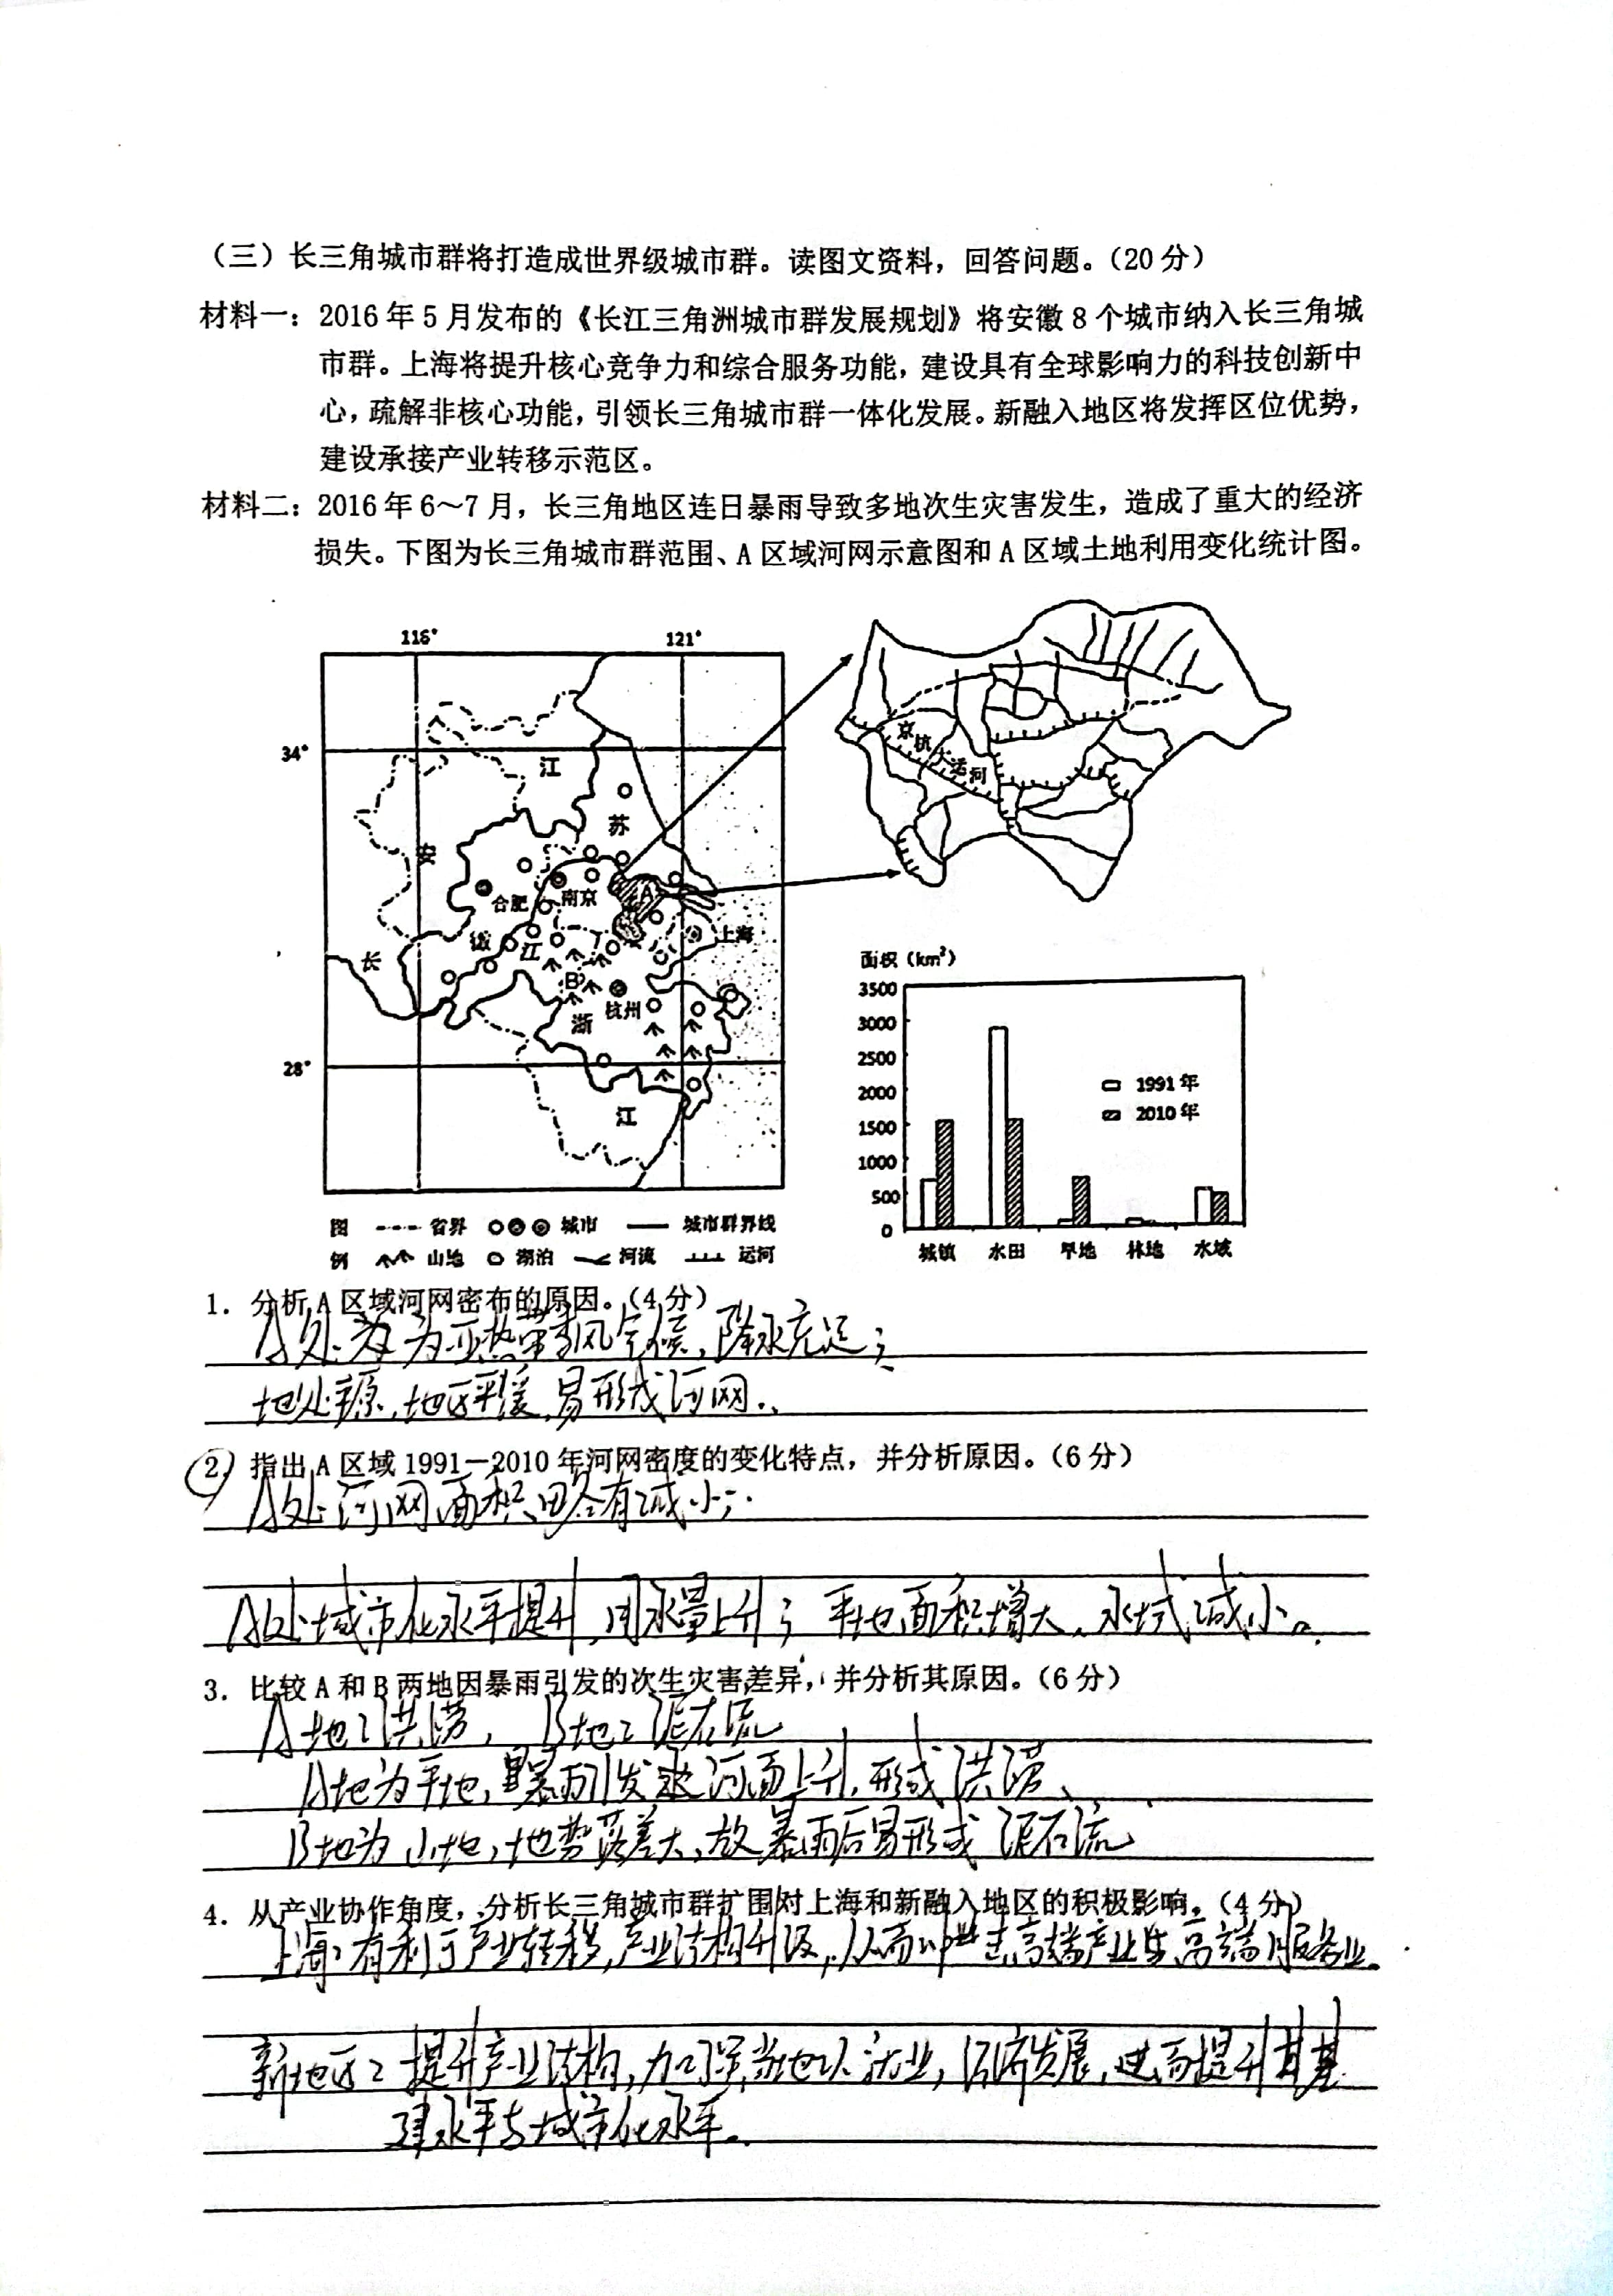 （三）长三角城市群将打造成世界级城市群。读图文资料，回答问题。（20分）
材料一：2016年5月发布的《长江三角洲城市群发展规划》将安徽8个城市纳入长三角城
市群。上海将提升核心竞争力和综合服务功能，建设具有全球影响力的科技创新中
心，疏解非核心功能，引领长三角城市群一体化发展。新融入地区将发挥区位优势，
建设承接产业转移示范区。
材料二：2016年6～7月，长三角地区连日暴雨导致多地次生灾害发生，造成了重大的经济
损失。下图为长三角城市群范围、A区域河网示意图和A区域土地利用变化统计图。
116° 121°
34°
江
苏
安
合肥 南京 A
徽 江 上海
长
B
杭州
浙
28°
江
京杭大运河
面积（km²）
3500
3000
2500
2000
1500
1000
500
0
1991年
2010年
城镇 水田 旱地 林地 水域
图 省界 城市 城市群界线
例 山地 湖泊 河流 运河
1．分析A区域河网密布的原因。（4分）
A处为亚热带季风气候，降水充足；
地处平原，地区平缓，易形成河网。
2．指出A区域1991－2010年河网密度的变化特点，并分析原因。（6分）
A处河网面积略有减小；
A处城市化水平提升，用水量上升；平地面积增大，水域减小。
3．比较A和B两地因暴雨引发的次生灾害差异，并分析其原因。（6分）
A地：洪涝，B地：泥石流
A地为平地，暴雨引发河面上升，形成洪涝、
B地为山地，地势落差大，故暴雨后易形成泥石流
4．从产业协作角度，分析长三角城市群扩围对上海和新融入地区的积极影响。（4分）
上海：有利于产业转移，产业结构升级，从而促进高端产业与高端服务业。
新地区：提升产业结构，加强当地以就业，经济发展，进而提升其基
建水平与城市化水平。